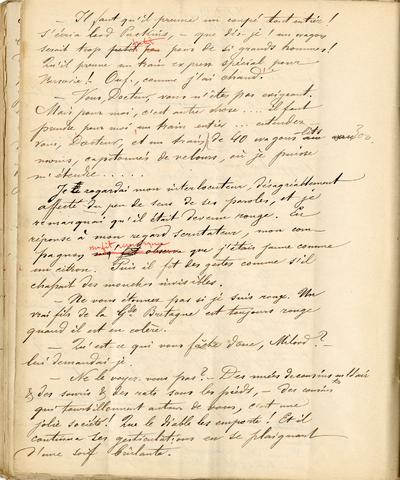 — Il faut qu'il prenne un coupé tout entier!
s'écria lord que dis-je! un wagon
serait trop petit pour de si grands hommes!
Qu'il prenne un train express spécial pour
Ouf, comme j'ai chaud!
— Vous, Docteur, vous n'êtes pas exigeant.
Mais pour moi, c'est autre chose.... il faut
prendre pour moi un train entier... entendez
vous, Docteur, un train de 40 wagons
capitonnés de velours, où je puisse
m'étendre.....
Je regardai mon interlocuteur, désagréablement
affecté du peu de sens de ses paroles, et je
remarquai qu'il était devenu rouge. En
réponse à mon regard scrutateur, mon com-
pagnon observer que j'étais jaune comme
un citron. Puis il fit des gestes comme s'il
chassait des mouches invisibles.
— Ne vous étonnez pas si je suis rouge. Un
vrai fils de la Gde Bretagne est toujours rouge
quand il est en colère.
— Qu'est-ce qui vous fâche donc, Milord? —
lui demandai-je.
— Ne le voyez-vous pas? — Des nuées de cousins
& des souris & des rats sous les pieds, — des cousins
qui fourmillent autour de nous, c'est une
jolie société! Que le diable les emporte! Et il
continua ses gesticulations en se plaignant
d'une soif brûlante.